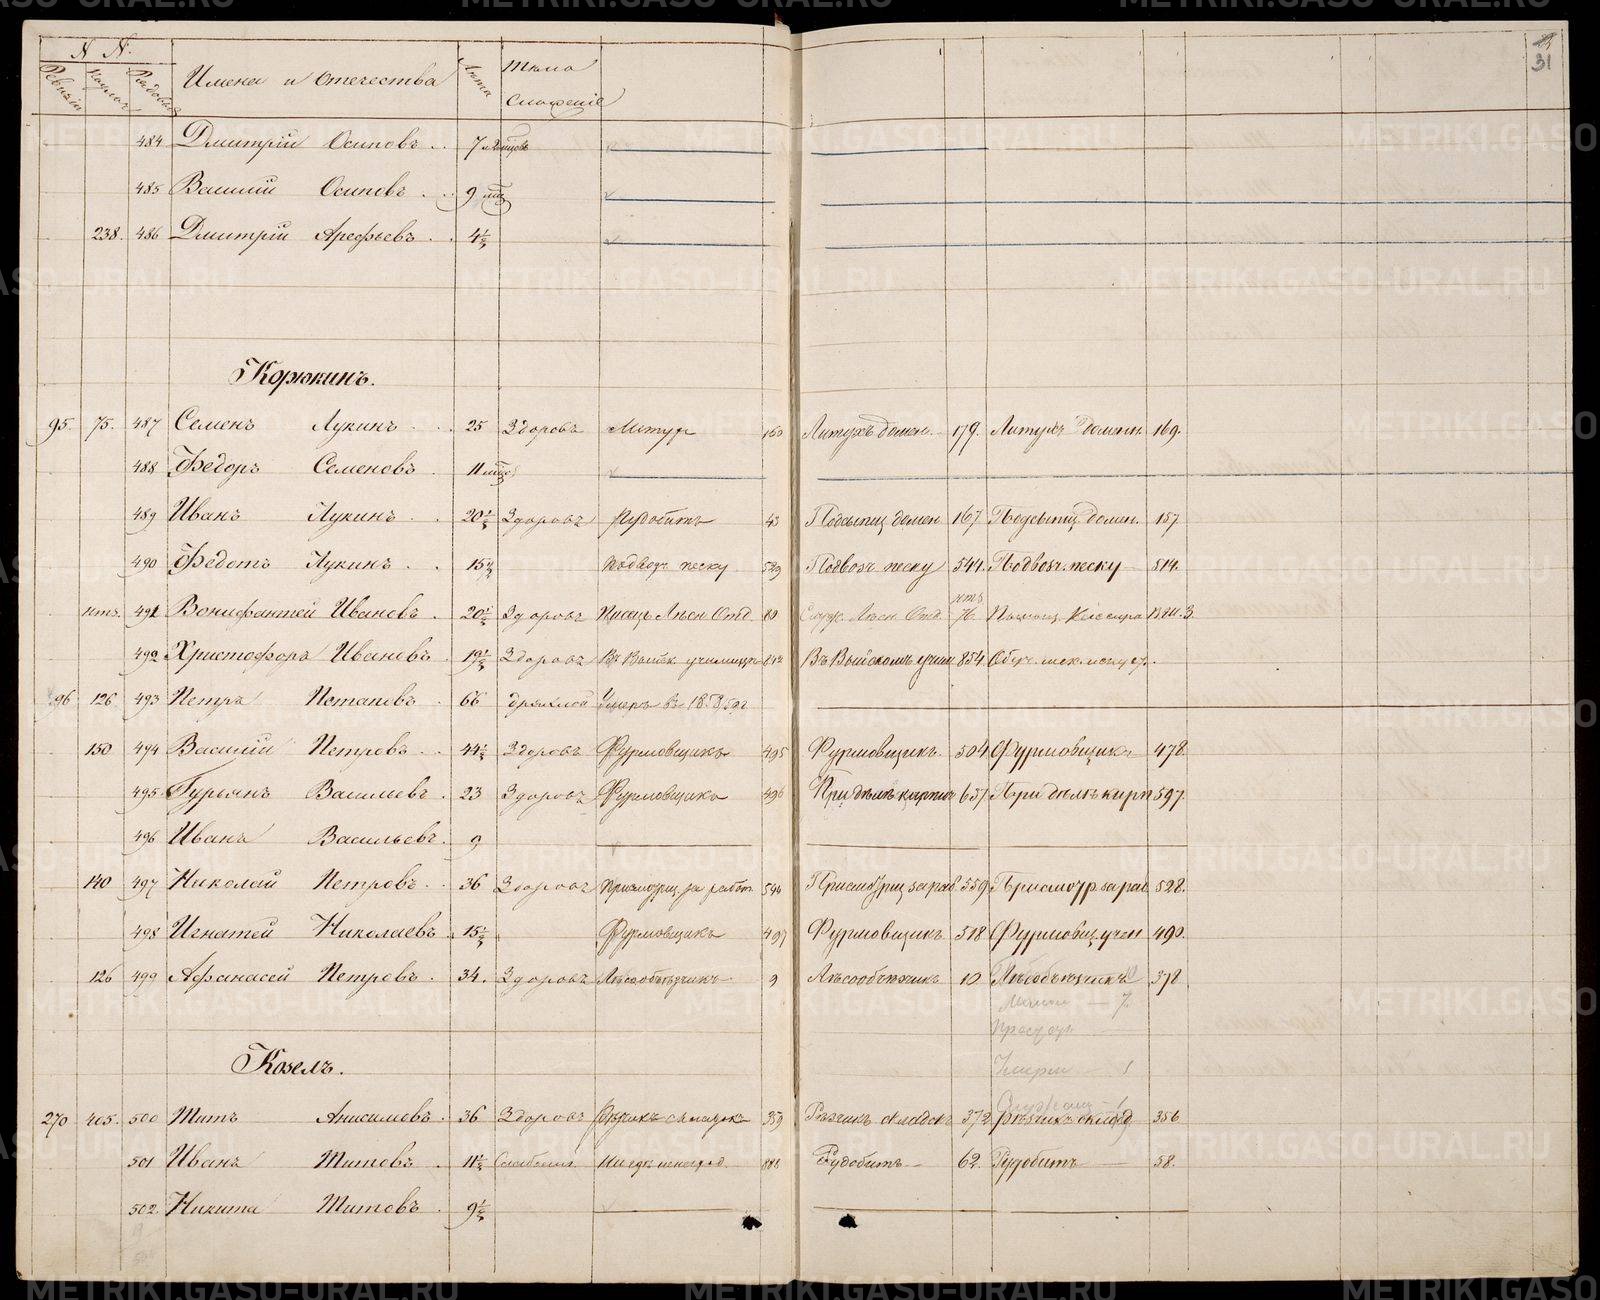 N N.
Ревизіи
Рядовые
Имена и Отечества
Лѣта
Тѣло
Сложеніе
31
484 Дмитрій Осиповъ . . 7 мѣсяцовъ
485 Василій Осиповъ . . 9 мѣс
238. 486 Дмитрій Арефьевъ . . 4½
Корюкинъ.
95. 75. 487 Семенъ Лукинъ . . 25 Здоровъ Литухъ 160 Литухъ домен. 179. Литухъ доменн. 169.
488 Федоръ Семеновъ . 11 мѣс
489 Иванъ Лукинъ . . 20½ Здоровъ Рудобитъ 43 Подсыпщ домен 167 Подсыпщ. домен. 157
490 Федотъ Лукинъ . . 15½ Подвозч песку 549 Подвозч песку 544. Подвозч. песку 514.
нтъ. 491 Вонифантей Ивановъ . 20½ Здоровъ Писецъ Лѣсн. Отд. 80 Служ. Лѣсн. Отд. 76. Помощ. Кассира
492 Христофоръ Ивановъ . 19½ Здоровъ Въ Выйск. училищѣ Въ Выйскомъ учил 854.
96 126 493 Петръ Потаповъ . 66 дряхлой Умеръ въ 1858/59 г
150 494 Василій Петровъ . . 44½ Здоровъ Фурмовщикъ 495 Фурмовщикъ. 504. Фурмовщикъ 478.
495 Гурьянъ Васильевъ . 23 Здоровъ Фурмовщикъ 496 При дѣлѣ кирпич 637. При дѣлѣ кирп 597.
496 Иванъ Васильевъ . 9
140 497 Николай Петровъ . . 36 Здоровъ Присмотрщ за работ. 594 Присмотрщ за раб. 559. Присмотр. за раб 528.
498 Игнатей Николаевъ . 15½ Фурмовщикъ 497 Фурмовщикъ 518 Фурмовщ. учен 490.
126 499 Афанасей Петровъ . 34. Здоровъ Лѣсообъѣзчикъ 9 Лѣсообъѣзчикъ 10 Лѣсообъѣзчикъ 378
Умерли 1
Козелъ.
270 405. 500 Титъ Анисимовъ . 36 Здоровъ Рѣзчикъ складокъ 359 Рѣзчикъ складокъ 372 Рѣзчикъ склад 356
501 Иванъ Титовъ . 11½ Слабосил. 886 Рудобитъ 62. Рудобитъ 58.
502. Никита Титовъ . 9½
METRIKI.GASO-URAL.RU